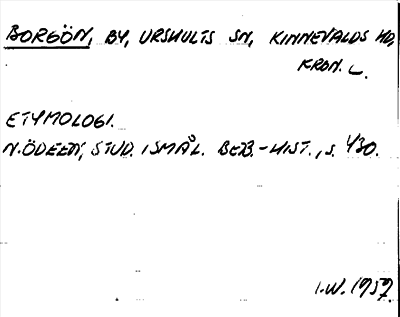 BORGÖN, BY, URSHULTS SN, KINNEVALDS HD,
KRON. L.
ETYMOLOGI.
N. ÖDEEN, STUD. I SMÅL. BEB.-HIST., S. 430.
I.W. 1959.